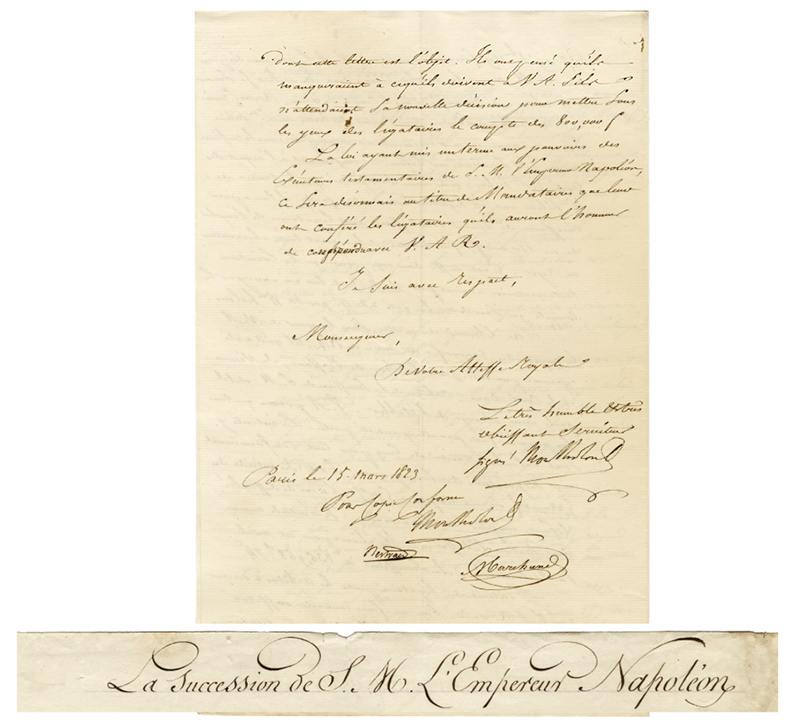 dont cette lettre est l'objet. Ils ont pensé qu'ils
manqueraient à cequ'ils doivent à V. A. S'ils
n'attendaient Sa nouvelle décision pour mettre Sous
les yeux des légataires le compte des 800,000 f
La loi ayant mis unterme aux pouvoirs des
Exécuteurs testamentaires de S. M. l'Empereur Napoléon,
ce Sera désormais autitre de Mandataires que leur
ont conféré les légataires qu'ils auront l'honneur
de correspondre avec V. A. R.
Je Suis avec respect,
Monseigneur,
De Votre Altesse Royale
Le très humble & très
obéissant Serviteur
signé Montholon
Paris le 15. mars 1823.
Pour Copie Conforme
Montholon
Bertrand
Marchand
La Succession de S. M. L'Empereur Napoléon